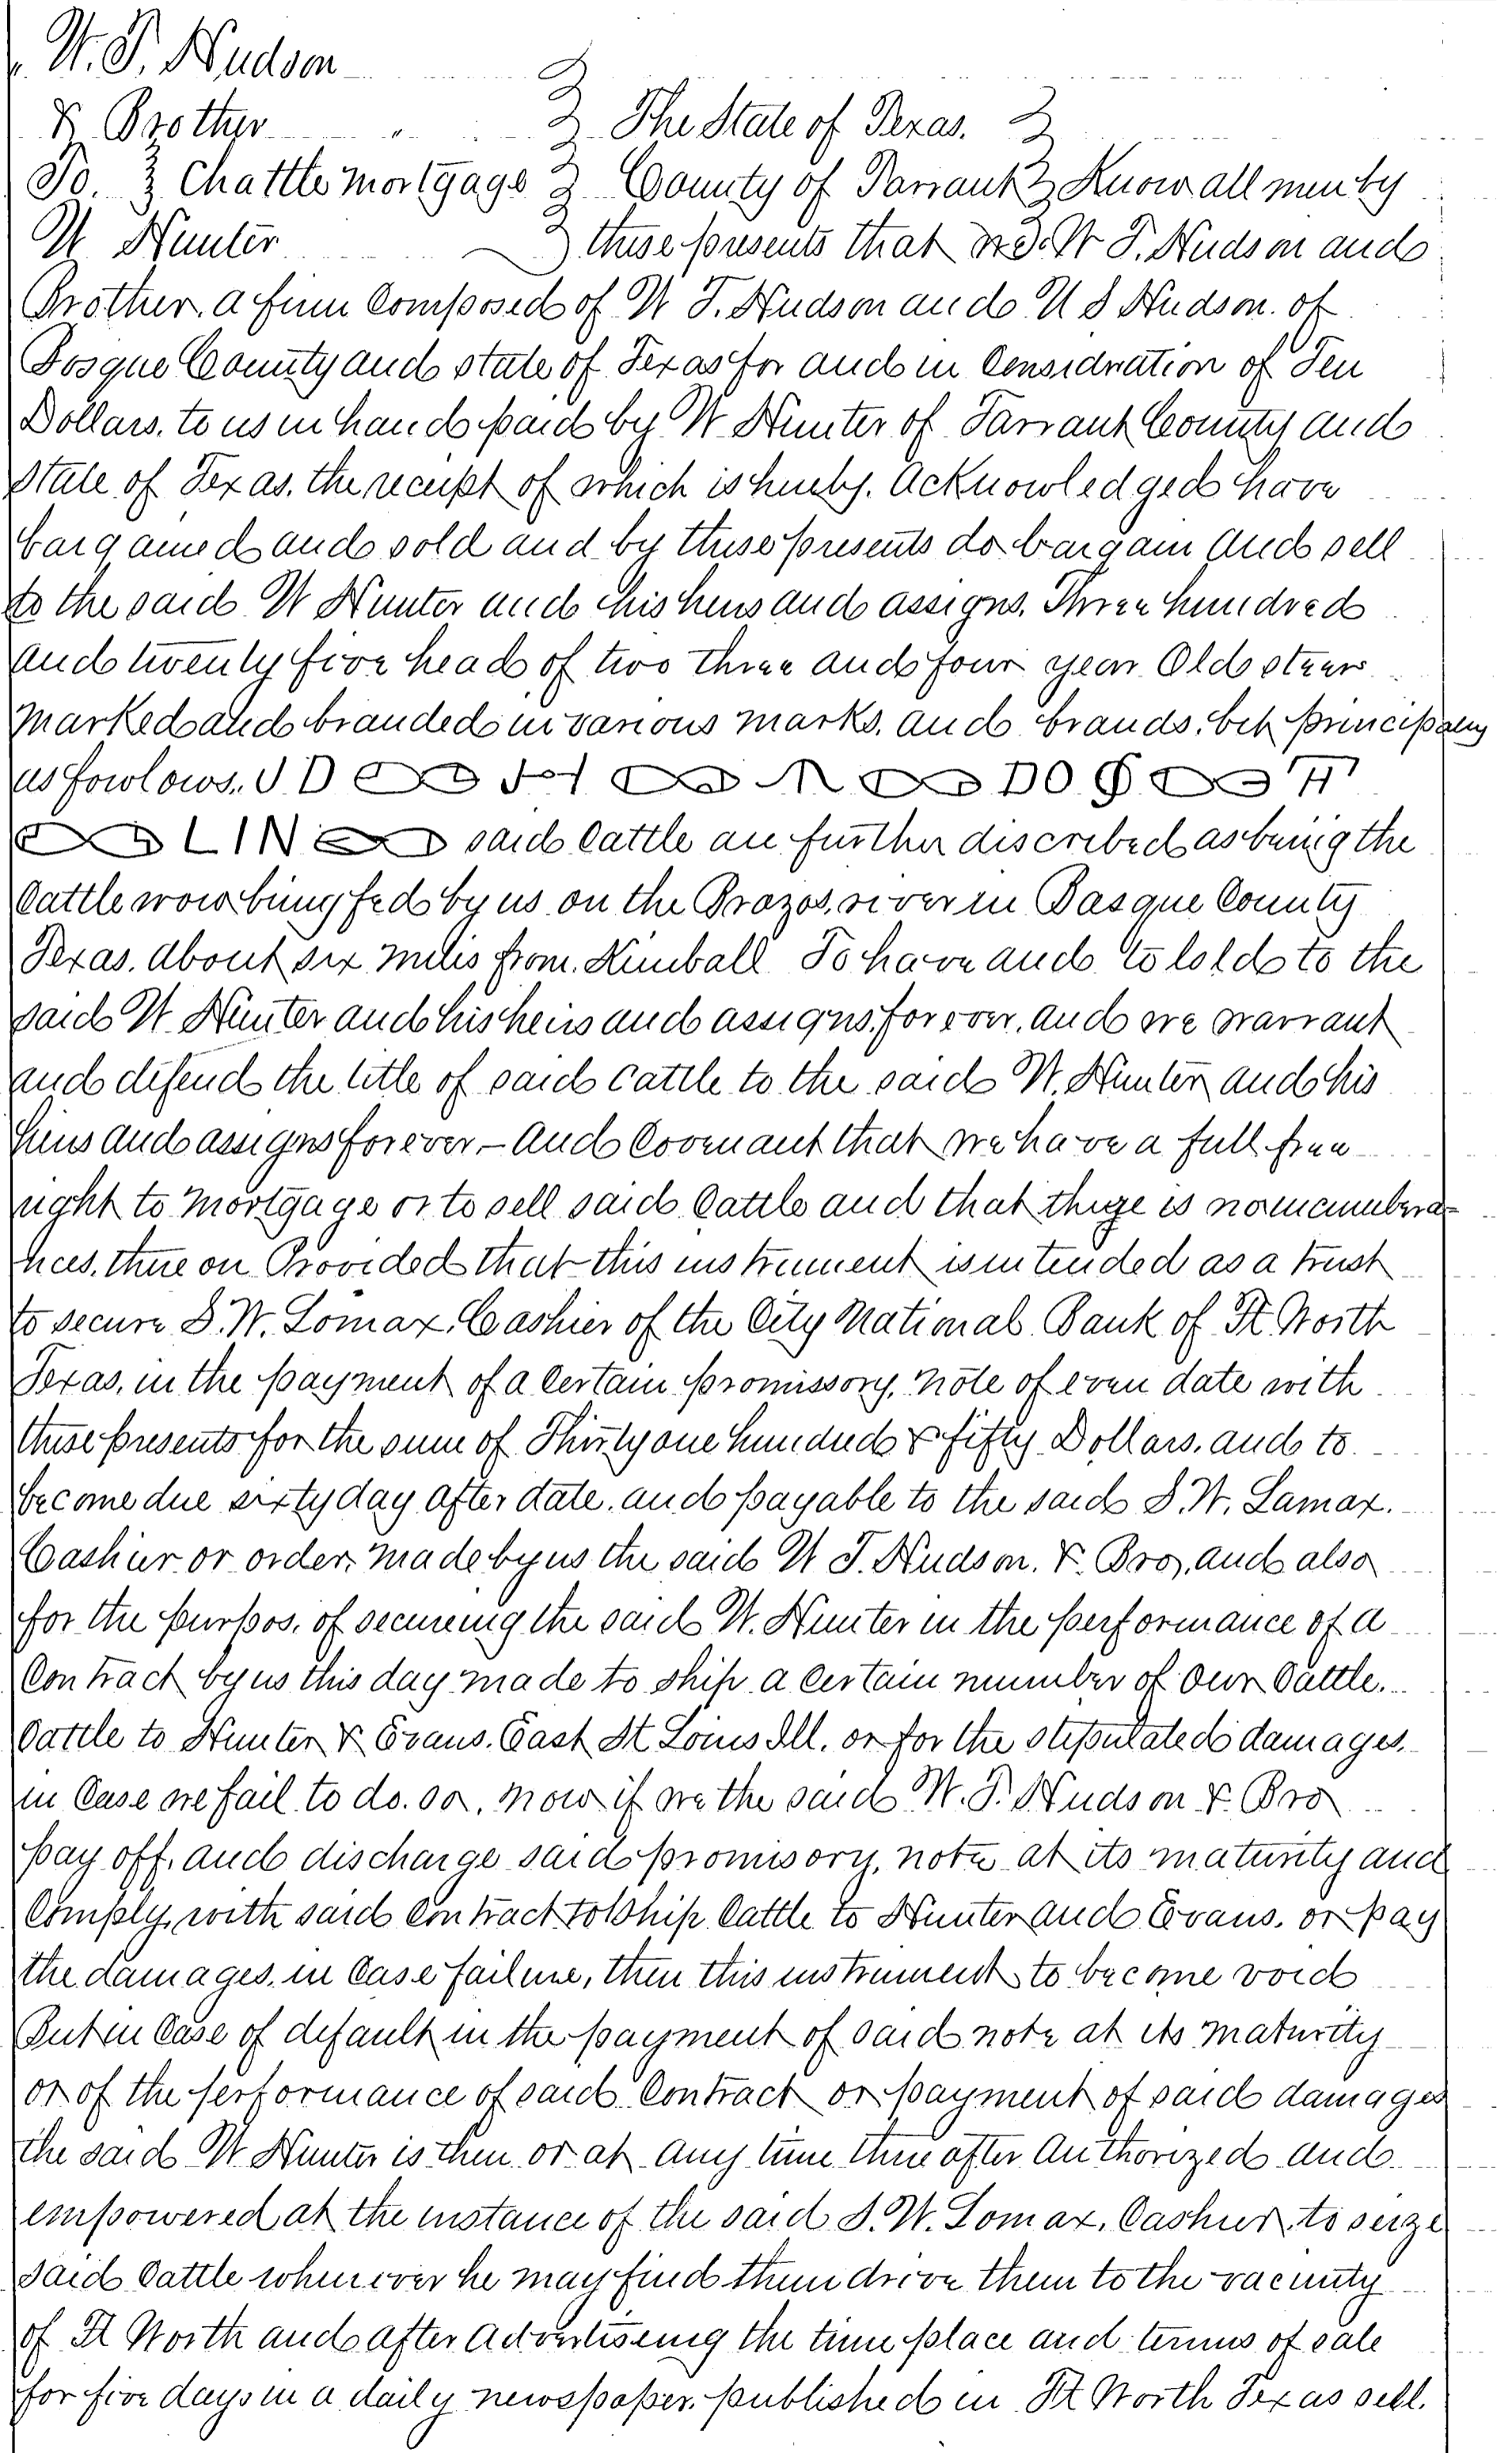 W. T. Hudson
& Brother " The State of Texas.
To Chattle Mortgage County of Tarrant Know all men by
W Hunter these presents that we. W T. Hudson and
Brother. a firm Composed of W T. Hudson and U S Hudson. of
Bosque County and State of Texas for and in Considration of Ten
Dollars. to us in hand paid by W Hunter of Tarrant County and
State of Texas. the receipt of which is hereby. Acknowledged have
bargained and sold and by these presents do bargain and sell
to the said W Hunter and his heirs and assigns. Three hundred
and twenty five head of two three and four year Old steers
Marked and branded in various marks. and brands. but principaly
as fowlows. J D DO S
LIN said Cattle are further discribed as being the
Cattle wow being fed by us on the Brazos. river in Basque County
Texas. about six miles from. Kimball To have and to lold to the
said W. Hunter and his heirs and assigns. forever. and we warrant
and defend the title of said cattle to the said W. Hunter and his
heirs and assigns forever - and Covenant that we have a full free
right to Mortgage or to sell said Cattle and that there is no incumbera-
nces. there on Provided that this instrument is intended as a trust
to secure S. W. Lomax. Cashier of the City National Bank of Ft Worth
Texas. in the payment of a Certain promissory. note of even date with
these presents for the sum of Thirty one hundred & fifty Dollars. and to
become due sixty day after date. and payable to the said S. W. Lamax.
Cashier or order. made by us the said W T. Hudson. & Bro, and also
for the purpos. of secureing the said W. Hunter in the performance of a
Contract by us this day made to ship a Certain number of Our Cattle.
Cattle to Hunter & Evans. East St Louis Ill. or for the stipulated damages.
in Case we fail to do. so. Now if we the said W. T. Hudson & Bro
pay off. and discharge said promisory. note at its maturity and
Comply. with said Contract to Ship Cattle to Hunter and Evans. or pay
the damages. in Case failure, then this instrument to become void
But in Case of default in the payment of said note at its maturity
or of the performance of said Contract or payment of said damages
the said W Hunter is then or at any time there after Authorized and
empowered at the instance of the said S. W. Lomax. Cashier. to seize
said Cattle wherever he may find them drive them to the vacinity
of Ft Worth and after Advertiseing the time place and terms of sale
for five days in a daily newspaper. published in Ft Worth Texas sell.